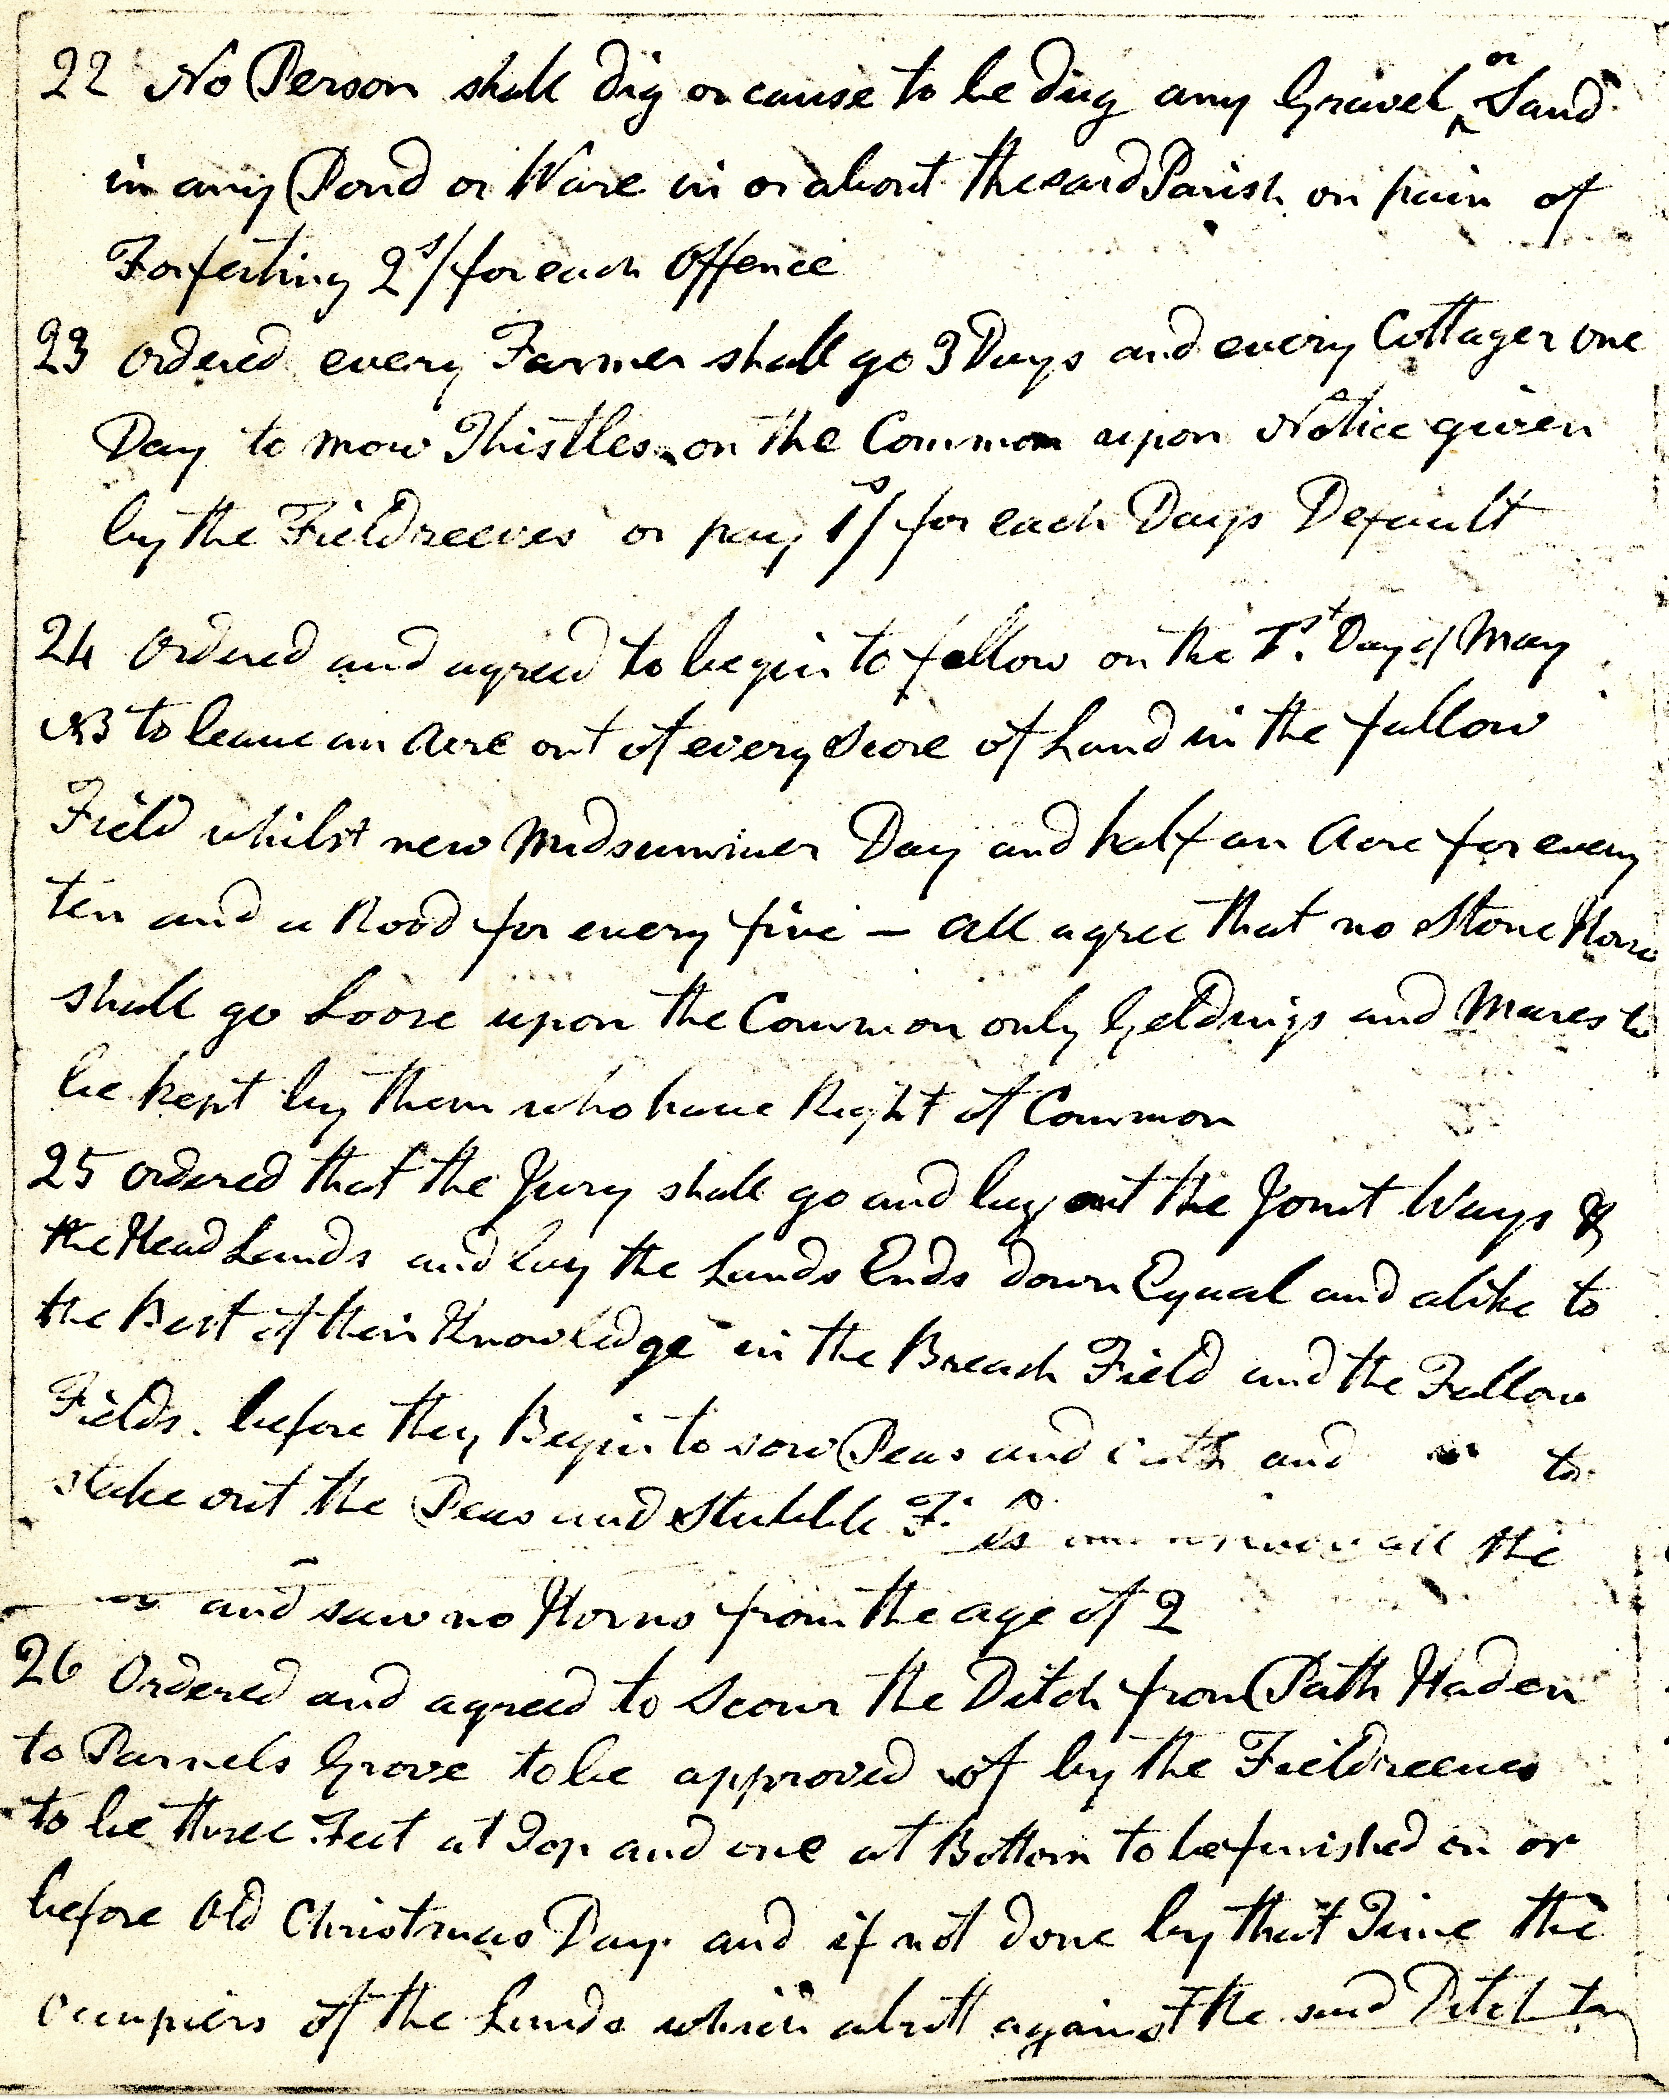 22 No Person shall dig or cause to be dug any Gravel or Sand
in any Pond or Ware in or about the said Parish on pain of
Forfeiting 2s/ for each Offence
23 Ordered every Farmer shall go 3 Days and every Cottager one
Day to mow Thistles on the Common upon Notice given
by the Fieldreeves or pay 1s/ for each Days Default
24 Ordered and agreed to begin to fallow on the 1st Day of May
NB to leave an Acre out of every Score of Land in the fallow
Field whilst new Midsummer Day and half an Acre for every
ten and a Rood for every five - all agree that no Stone Horse
shall go Loose upon the Common only Geldings and Mares to
be kept by them who have Right of Common
25 Ordered that the Jury shall go and lay out the Joint Ways &
the Head Lands and lay the Lands Ends down Equal and alike to
the Best of their Knowledge in the Breach Field and the Fallow
Fields. before they Begin to sow Peas and and to
stake out the Peas and Stubble all the
and saw no Horns from the age of 2
26 Ordered and agreed to Scour the Ditch from Path Haden
to Parnels Grove to be approved of by the Fieldreeves
to be three Feet at Top and one at Bottom to be finished on or
before Old Christmas Day. and if not done by that Time the
Occupiers of the Lands which abutt against the said Ditch to